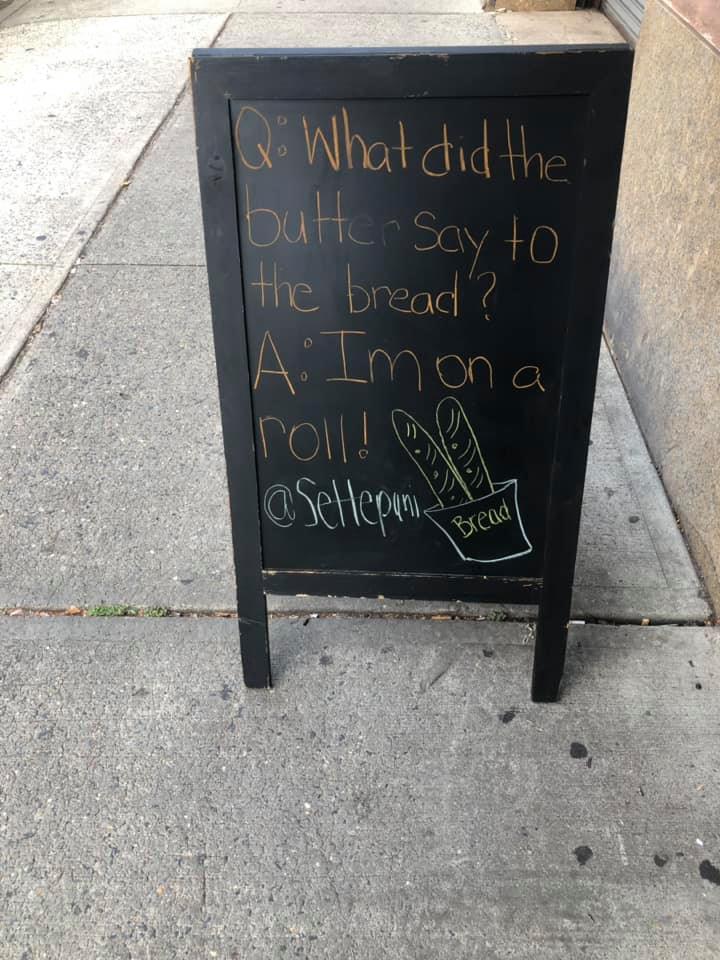 Q: What did the
butter say to
the bread?
A: Im on a
roll!
@Settepani
Bread